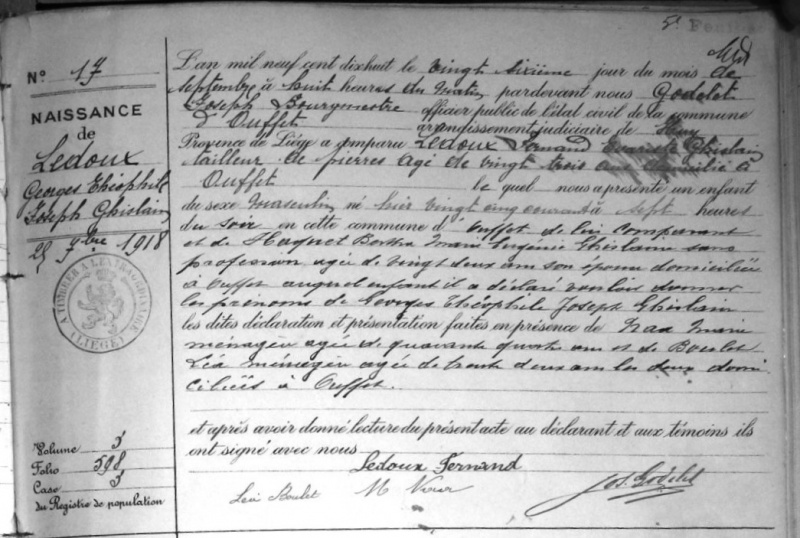 5
N° 17
NAISSANCE
de
Ledoux
Georges Théophile
Joseph Ghislain
25 7bre 1918
A TIMBRER A L'EXTRAORDINAIRE
(LIÈGE)
Volume 3
Folio 598
Case 3
du Registre de population
L'an mil neuf cent dixhuit le vingt sixième jour du mois de
Septembre à huit heures du matin pardevant nous Godelet
Joseph Bourgmestre officier public de l'état civil de la commune
d'Ouffet arrondissement judiciaire de Huy
Province de Liége a comparu Ledoux Fernand Evariste Ghislain
tailleur de pierres agé de vingt trois ans domicilié à
Ouffet le quel nous a présenté un enfant
du sexe masculin né hier vingt cinq courant à sept heures
du soir en cette commune d'Ouffet de lui comparant
et de Haquet Bertha Marie Eugénie Ghislaine sans
profession agée de vingt deux ans son épouse domiciliée
à Ouffet auquel enfant il a déclaré vouloir donner
les prénoms de Georges Théophile Joseph Ghislain
les dites déclaration et présentation faites en présence de Marie
ménagère agée de quarante quatre ans et de Boulet
Léa ménagère agée de trente deux ans les deux domi
ciliées à Ouffet.
et après avoir donné lecture du présent acte au déclarant et aux témoins ils
ont signé avec nous
Ledoux Fernand
Léa Boulet M Jos. Godelet